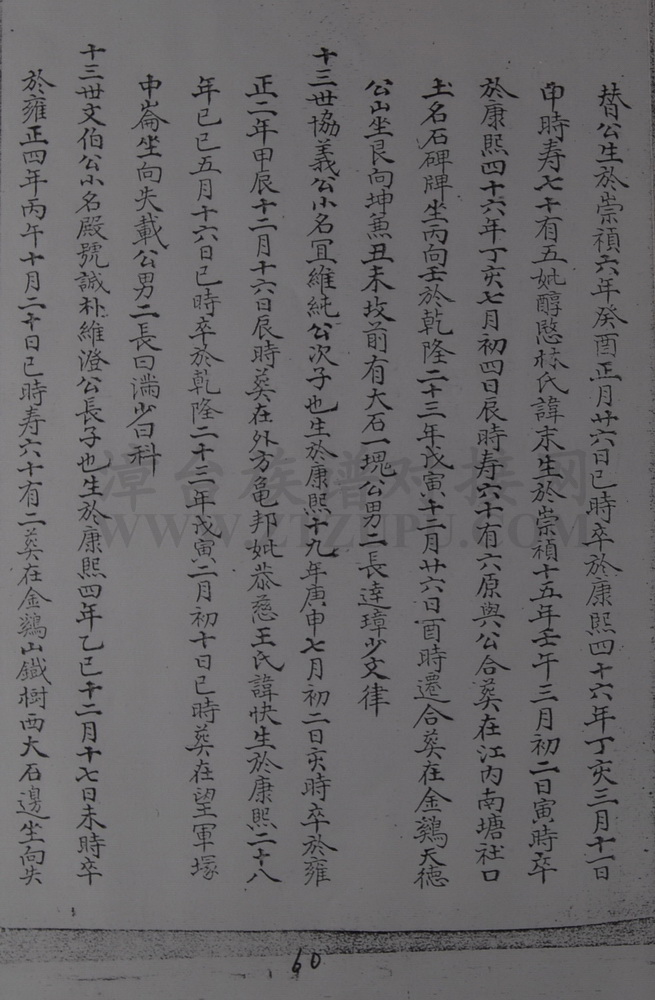 替公生於崇禎六年癸酉正月廿六日巳時卒於康熙四十六年丁亥三月十一日
申時寿七十有五妣醇愍林氏諱末生於崇禎十五年壬午三月初二日寅時卒
於康熙四十六年丁亥七月初四日辰時寿六十有六原與公合葬在江內南塘社口
土名石碑牌坐丙向壬於乾隆二十三年戊寅十二月廿六日酉時遷合葬在金鷄天德
公山坐艮向坤兼丑未坟前有大石一塊公男二長達璋少文律
十三世協義公小名冝維純公次子也生於康熙十九年庚申七月初二日亥時卒於雍
正二年甲辰十二月十六日辰時葬在外方龟邦妣恭慈王氏諱快生於康熙二十八
年己巳五月十六日巳時卒於乾隆二十三年戊寅二月初十日巳時葬在望軍塚
中崙坐向失載公男二長曰滿少曰科
十三世文伯公小名殿號誠朴維澄公長子也生於康熙四年乙巳十二月十七日未時卒
於雍正四年丙午十月二十日巳時寿六十有二葬在金鷄山鐵樹西大石邊坐向失
漳台族谱对接网
WWW.ZTZUPU.COM
60